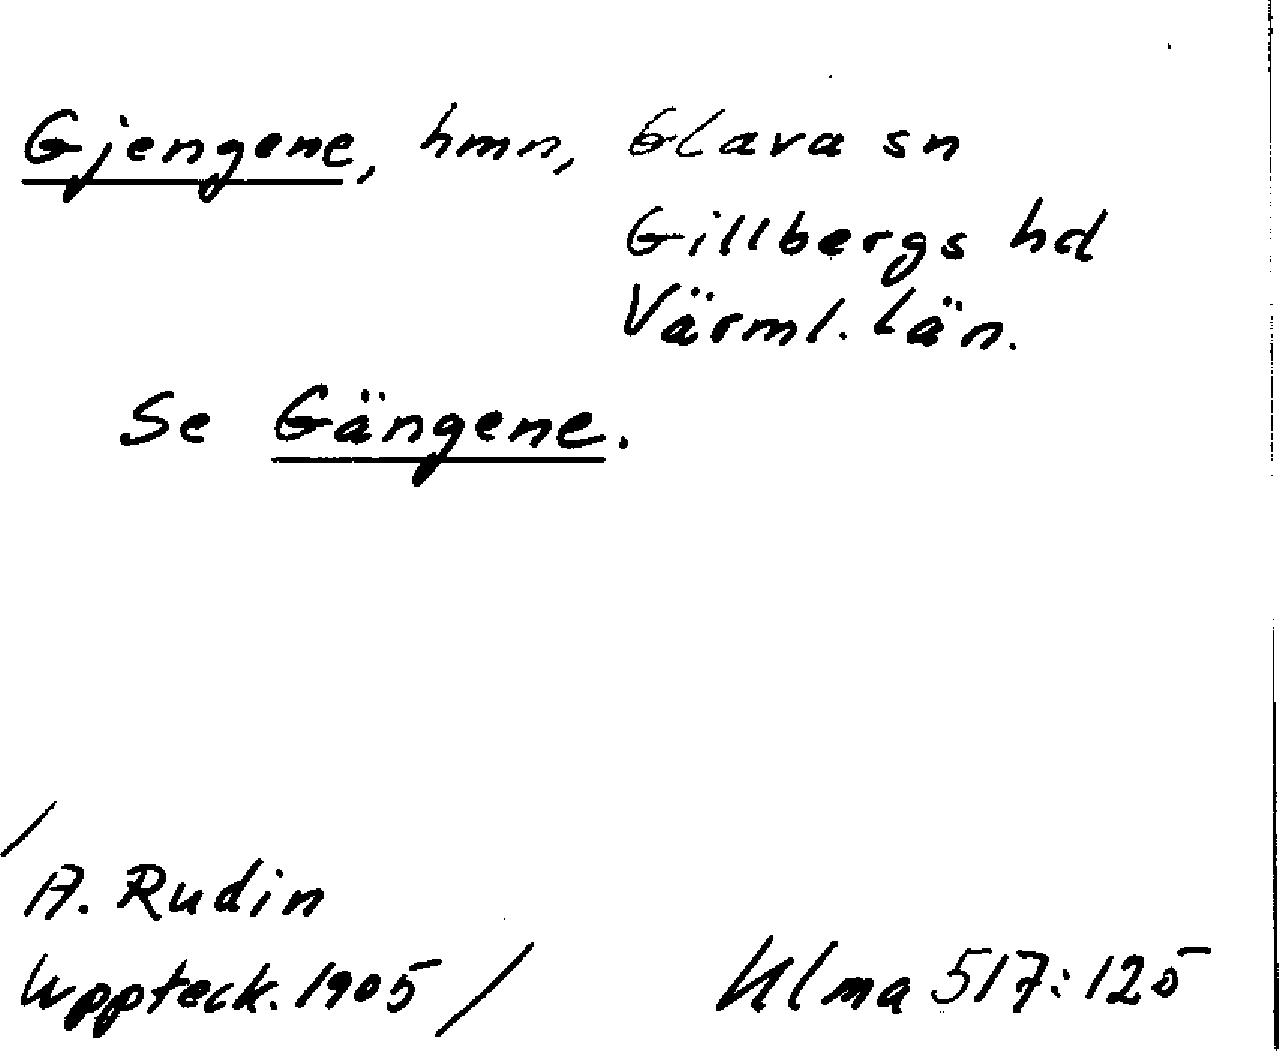 Gjengene, hmn, Glava sn
Gillbergs hd
Värml. län.
Se Gängene.
/
A. Rudin
Uppteck. 1905 /
Ulma 517:125